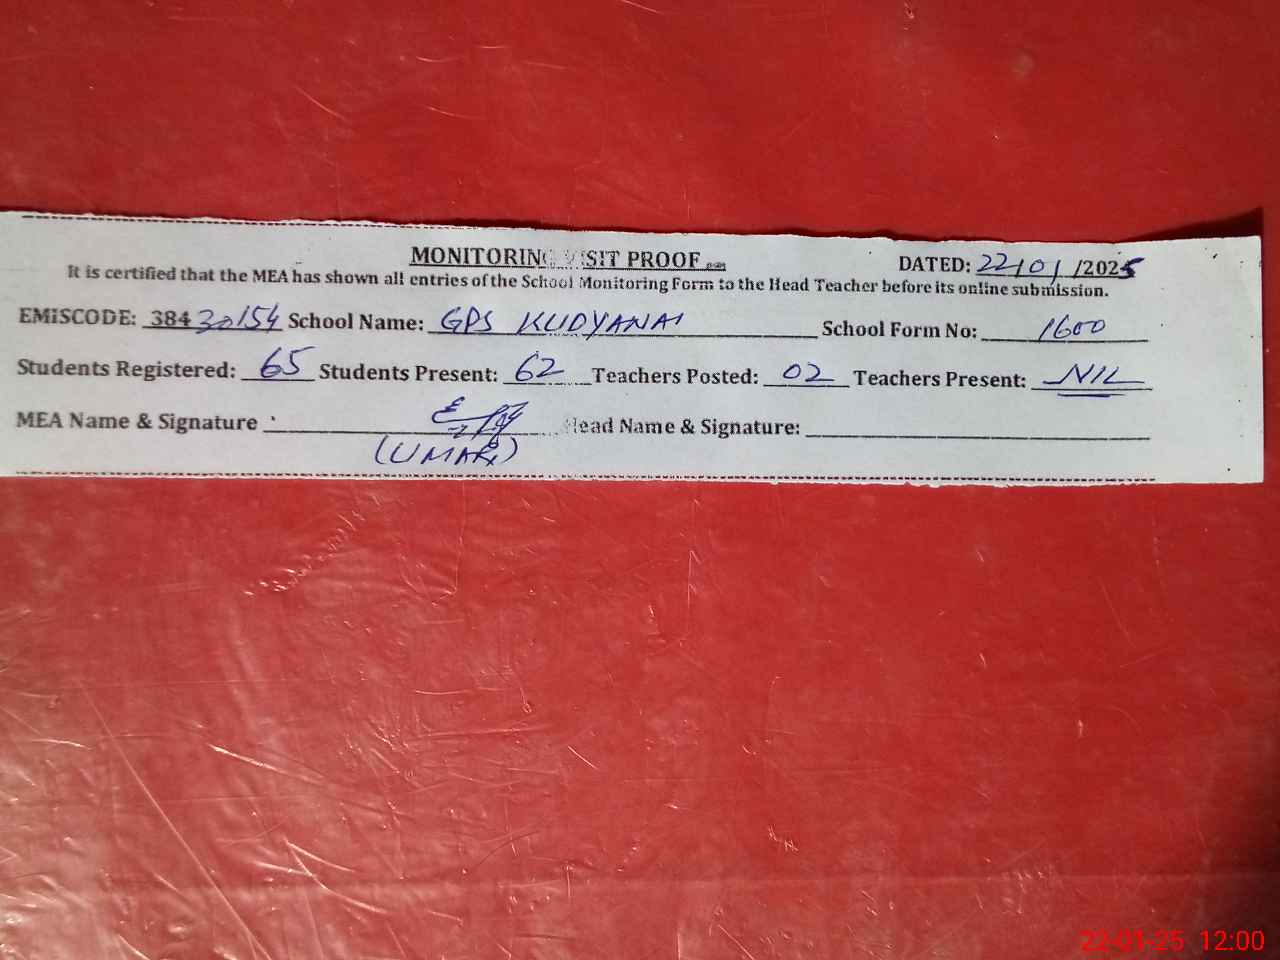 MONITORING VISIT PROOF
DATED: 22/01/2025
It is certified that the MEA has shown all entries of the School Monitoring Form to the Head Teacher before its online submission.
EMISCODE: 38430154 School Name: GPS KUDYANAI School Form No: 1600
Students Registered: 65 Students Present: 62 Teachers Posted: 02 Teachers Present: NIL
MEA Name & Signature Head Name & Signature:
(UMAR)
22-01-25 12:00